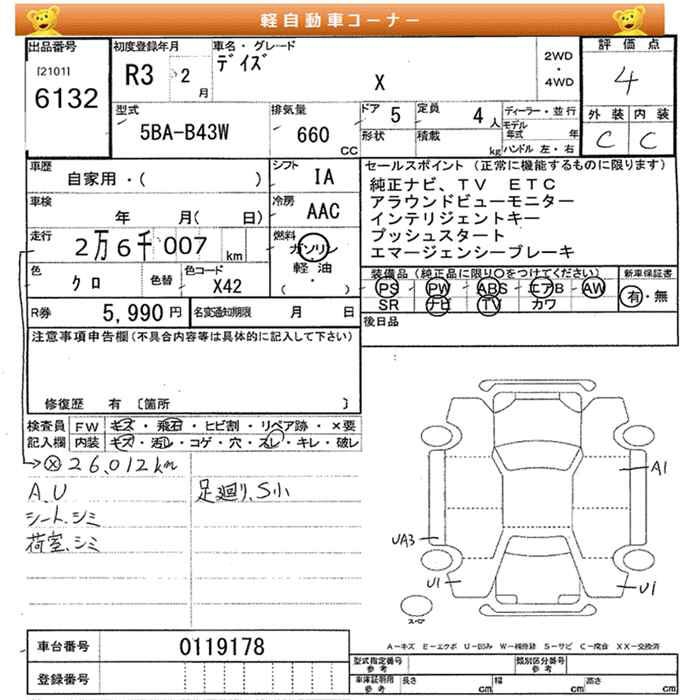 軽自動車コーナー
出品番号
[2101]
6132
初度登録年月
R3 2月
車名・グレード
デイズ
X
2WD
・
4WD
評価点
4
外装 内装
C C
型式
5BA-B43W
排気量
660 CC
ドア 5
形状
定員 4人
積載 kg
ディーラー・並行
モデル年式 年
ハンドル 左・右
車歴
自家用・( )
シフト
IA
車検
年 月( 日)
冷房
AAC
走行
2万6千007 km
燃料
ガソリン
・
軽油
( )
色
クロ
色替
色コード
X42
R券 5,990円
名変通知期限 月 日
セールスポイント (正常に機能するものに限ります)
純正ナビ、TV ETC
アラウンドビューモニター
インテリジェントキー
プッシュスタート
エマージェンシーブレーキ
装備品(純正品に限り○をつけてください)
PS PW ABS エアB AW
SR ナビ TV カワ
新車保証書
有・無
後日品
注意事項申告欄(不具合内容等は具体的に記入して下さい)
修復歴 有 〔箇所 〕
検査員 FW キズ・飛石・ヒビ割・リペア跡・×要
記入欄 内装 キズ・汚レ・コゲ・穴・スレ・キレ・破レ
→Ⓧ26,012km
A,U
シート、シミ
荷室、シミ
足廻り、S小
A1
UA3
U1
U1
スペア
A-キズ E-エクボ U-凹み W-補修跡 S-サビ C-腐食 XX-交換済
車台番号 0119178
登録番号
型式指定番号 参考
類別区分番号 参考
車庫証明用 参考 長さ cm 幅 cm 高さ cm